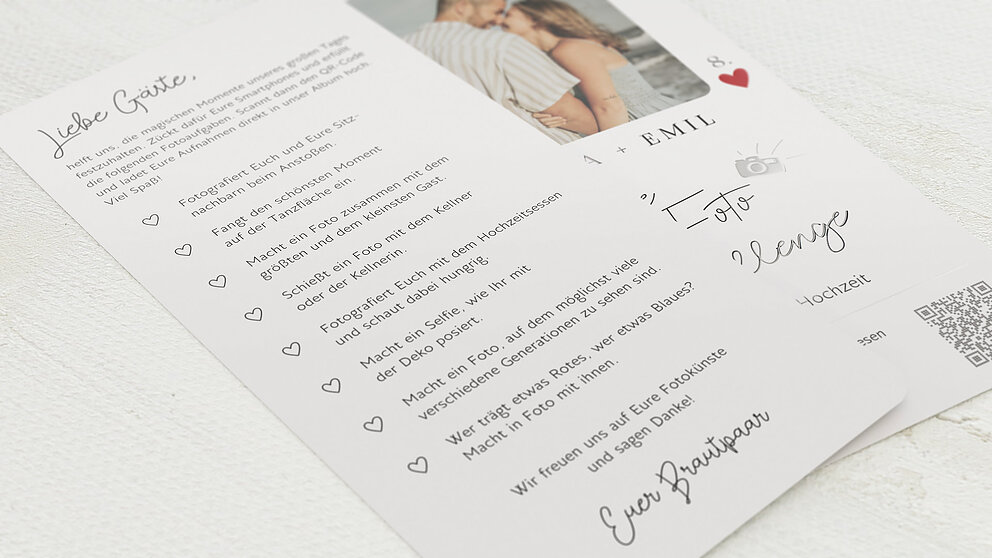 Liebe Gäste,
helft uns, die magischen Momente unseres großen Tages
festzuhalten. Zückt dafür Eure Smartphones und erfüllt
die folgenden Fotoaufgaben. Scannt dann den QR-Code
und ladet Eure Aufnahmen direkt in unser Album hoch.
Viel Spaß!
Fotografiert Euch und Eure Sitz-
nachbarn beim Anstoßen.
Fangt den schönsten Moment
auf der Tanzfläche ein.
Macht ein Foto zusammen mit dem
größten und dem kleinsten Gast.
Schießt ein Foto mit dem Kellner
oder der Kellnerin.
Fotografiert Euch mit dem Hochzeitsessen
und schaut dabei hungrig.
Macht ein Selfie, wie Ihr mit
der Deko posiert.
Macht ein Foto, auf dem möglichst viele
verschiedene Generationen zu sehen sind.
Wer trägt etwas Rotes, wer etwas Blaues?
Macht in Foto mit ihnen.
Wir freuen uns auf Eure Fotokünste
und sagen Danke!
Euer Brautpaar
8.
A + EMIL
Foto
Hochzeit